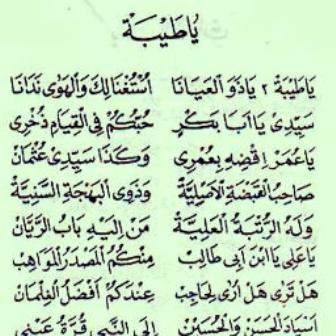 يَاطَيْبَةْ
يَاطَيْبَةْ ٢ يَاذَوَالْعَيَانَا اُسْتُغْنَالِكْ وَالْهَوٰى نَدَانَا
سَيِّدِيْ يَااَبَا بَكْرٍ حُبُّكُمْ فِى الْقِيَامِ ذُخْرِى
يَاعُمَرْ اِقْضِهِ بِعُمْرِى وَكَذَا سَيِّدِيْ عُثْمَانْ
صَاحِبُ الْقَبْضَةِ الْاَصْلِيَّةْ وَذَوِى الْبَهْجَةِ السَّنِيَّةْ
وَلَهُ الرُّتْبَةُ الْعَلِيَّةْ مَنْ اِلَيْهِ بَابُ الرَّيَّانْ
يَاعَلِى يَاابْنَ اَبِى طَالِبْ مِنْكُمُ الْمَصْدَرُ الْمَوَاهِبْ
هَلْ تَرٰى هَلْ اُرٰى لِحَاجِبْ عِنْدَكُمْ اَفْضَلُ الْغِلْمَانْ
اَسْيَادِ الْحَسَنْ وَالْحُسَيْنْ اِلَى النَّبِى قُرَّةُ عَيْنِى